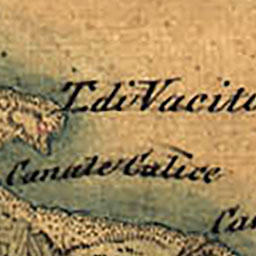 T.di Vacito
Canale Calice
Ca